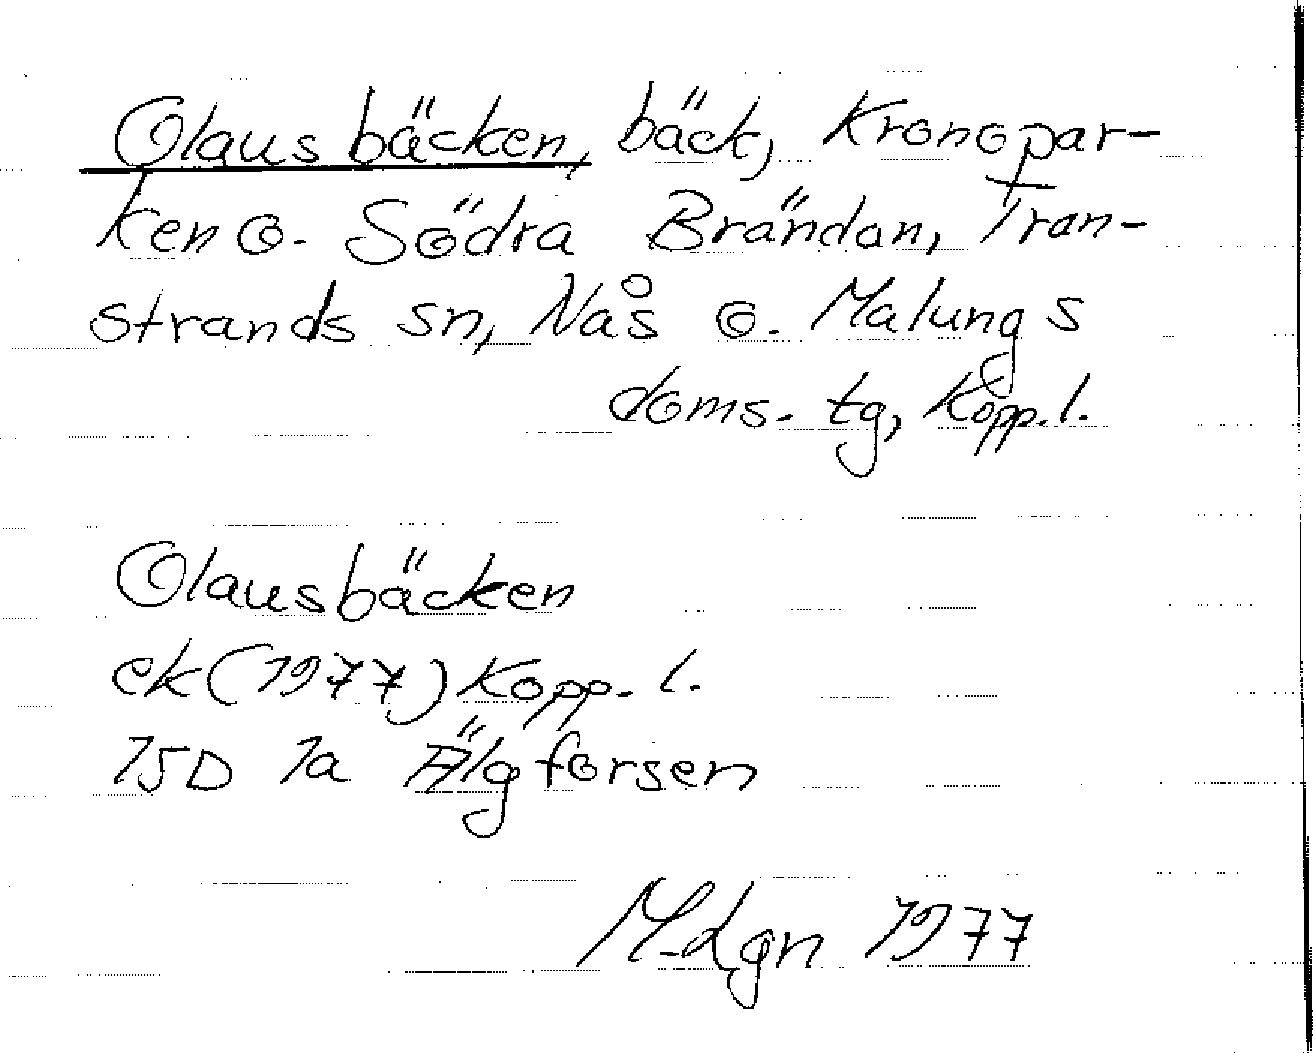 Olausbäcken, bäck, Kronopar-
ken o. Södra Brändan, Tran-
strands sn, Nås o. Malungs
doms. tg, Kopp. l.
Olausbäcken
ek (1977) Kopp. l.
15D 1a Älgforsen
M-dgn 1977